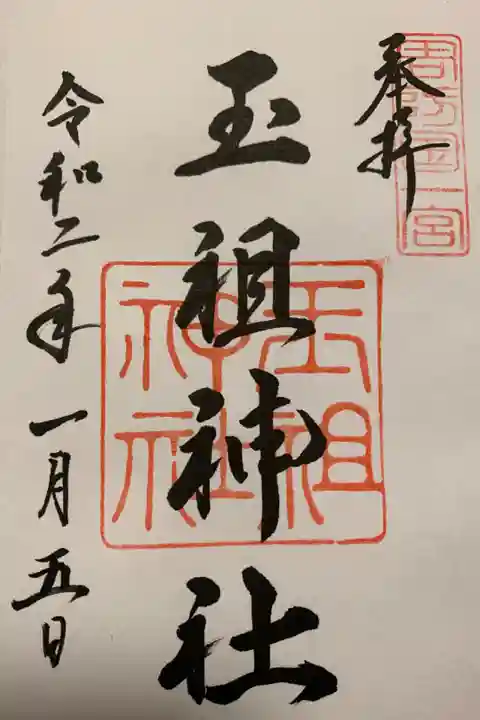 奉拝
周防国一宮
玉祖神社
玉祖
神社
令和二年一月五日